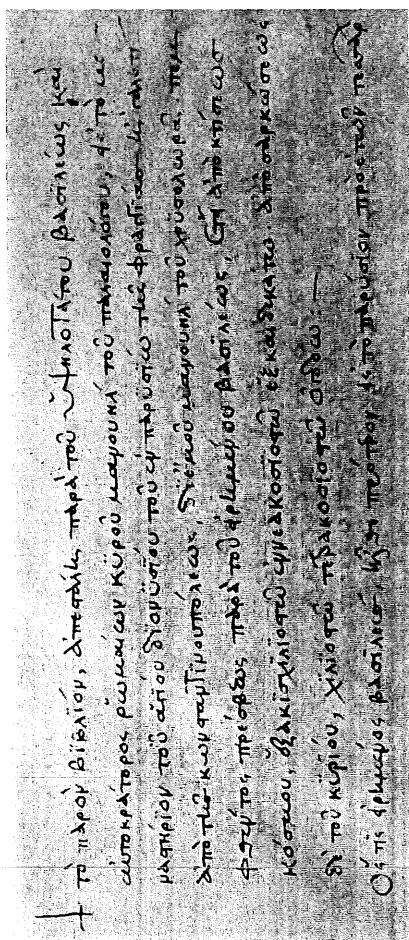 + τὸ παρὸν βιβλίον, ἀπεστάλη παρὰ τοῦ ὑψηλοτάτου βασιλέως καὶ
αὐτοκράτορος ῥωμαίων κυροῦ μανουὴλ τοῦ παλαιολόγου, εἰς τὸ μο
ναστήριον τοῦ ἁγίου διονυσίου τοῦ ἐν παρυσίῳ τῆς φραγγίας
ἀπὸ τῆς κωνσταντινουπόλεως, δι' ἐμοῦ μανουὴλ τοῦ χρυσολωρᾶ, πεμ
φθέντος πρέσβεως παρὰ τοῦ εἰρημένου βασιλέως, ἔτει ἀπὸ κτίσεως
κόσμου, ἑξακισχιλιοστῷ ἐννεακοσιοστῷ ἑξκαιδεκάτῳ. ἀπὸ σαρκώσεως
δὲ τοῦ κυρίου, χιλιοστῷ τετρακοσιοστῷ ὀγδόῳ:—
Ὅστις εἰρημένος βασιλεὺς, ἦλθε πρότερον εἰς τὸ παρύσιον πρὸ ἐτῶν